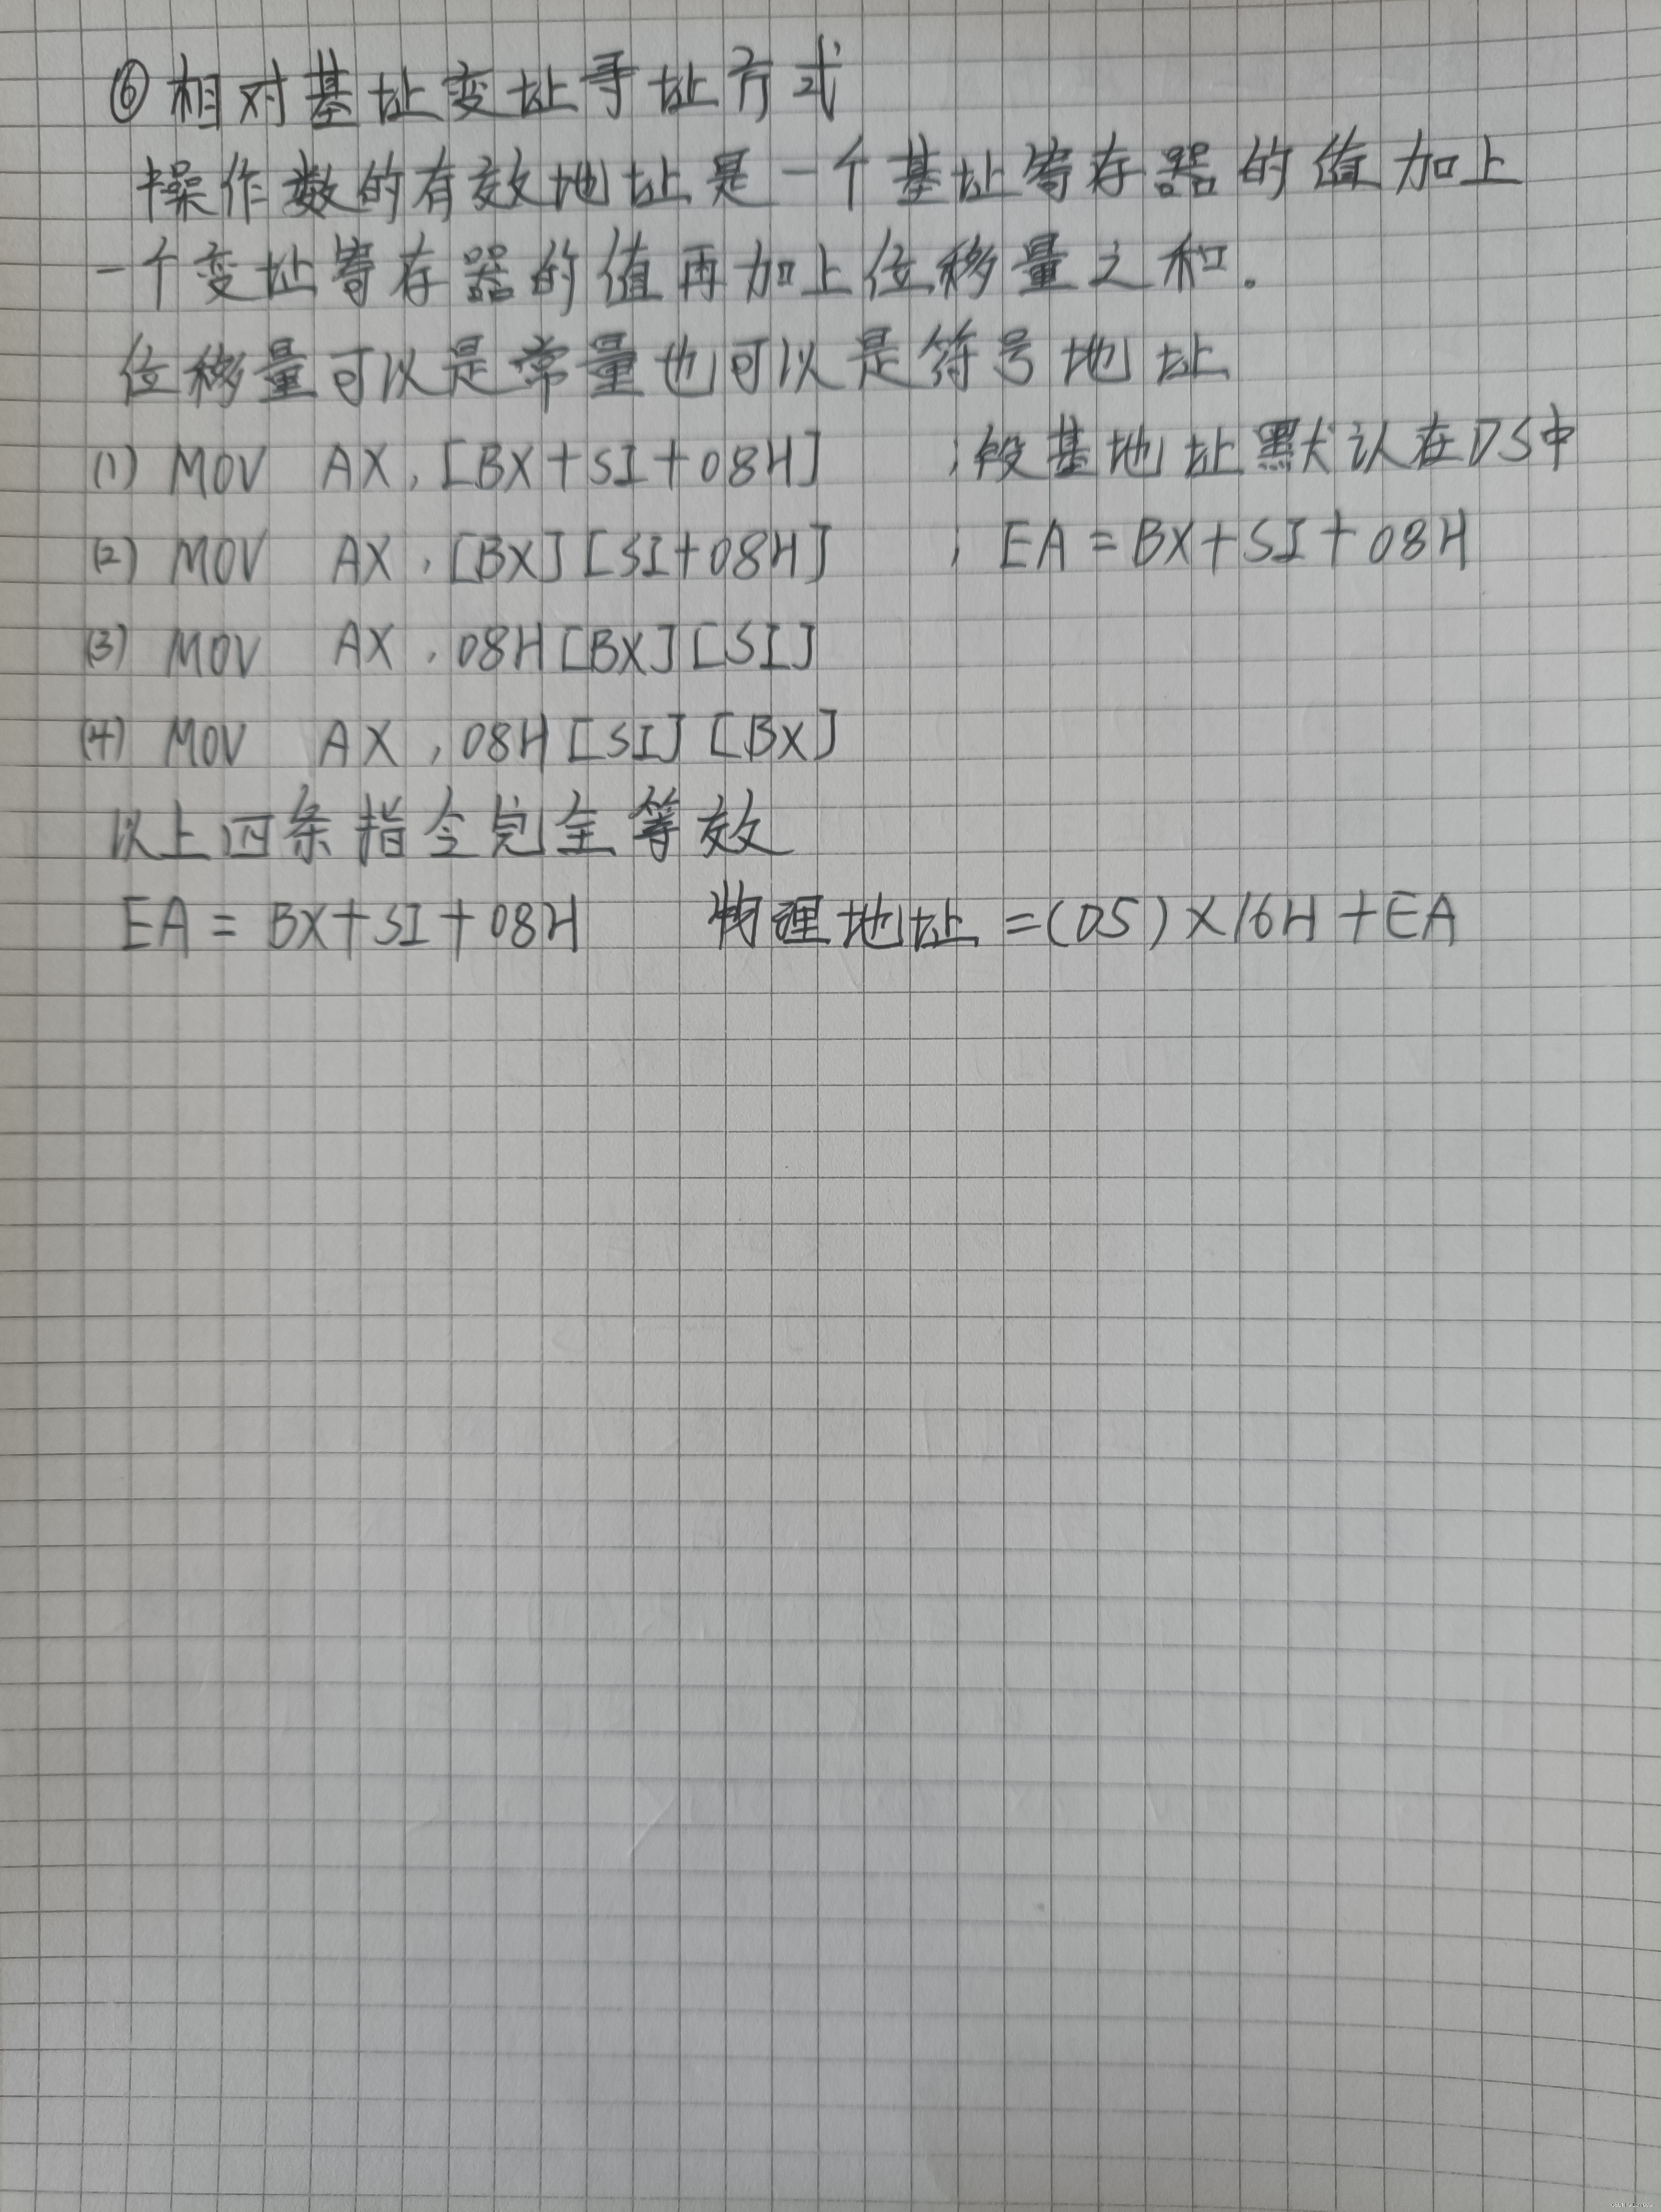 ⑥相对基址变址寻址方式
操作数的有效地址是一个基址寄存器的值加上
一个变址寄存器的值再加上位移量之和。
位移量可以是常量也可以是符号地址
(1) MOV AX,[BX+SI+08H] ;段基地址默认在DS中
(2) MOV AX,[BX][SI+08H] ; EA=BX+SI+08H
(3) MOV AX,08H[BX][SI]
(4) MOV AX,08H[SI][BX]
以上四条指令完全等效
EA=BX+SI+08H 物理地址=(DS)×16H+EA